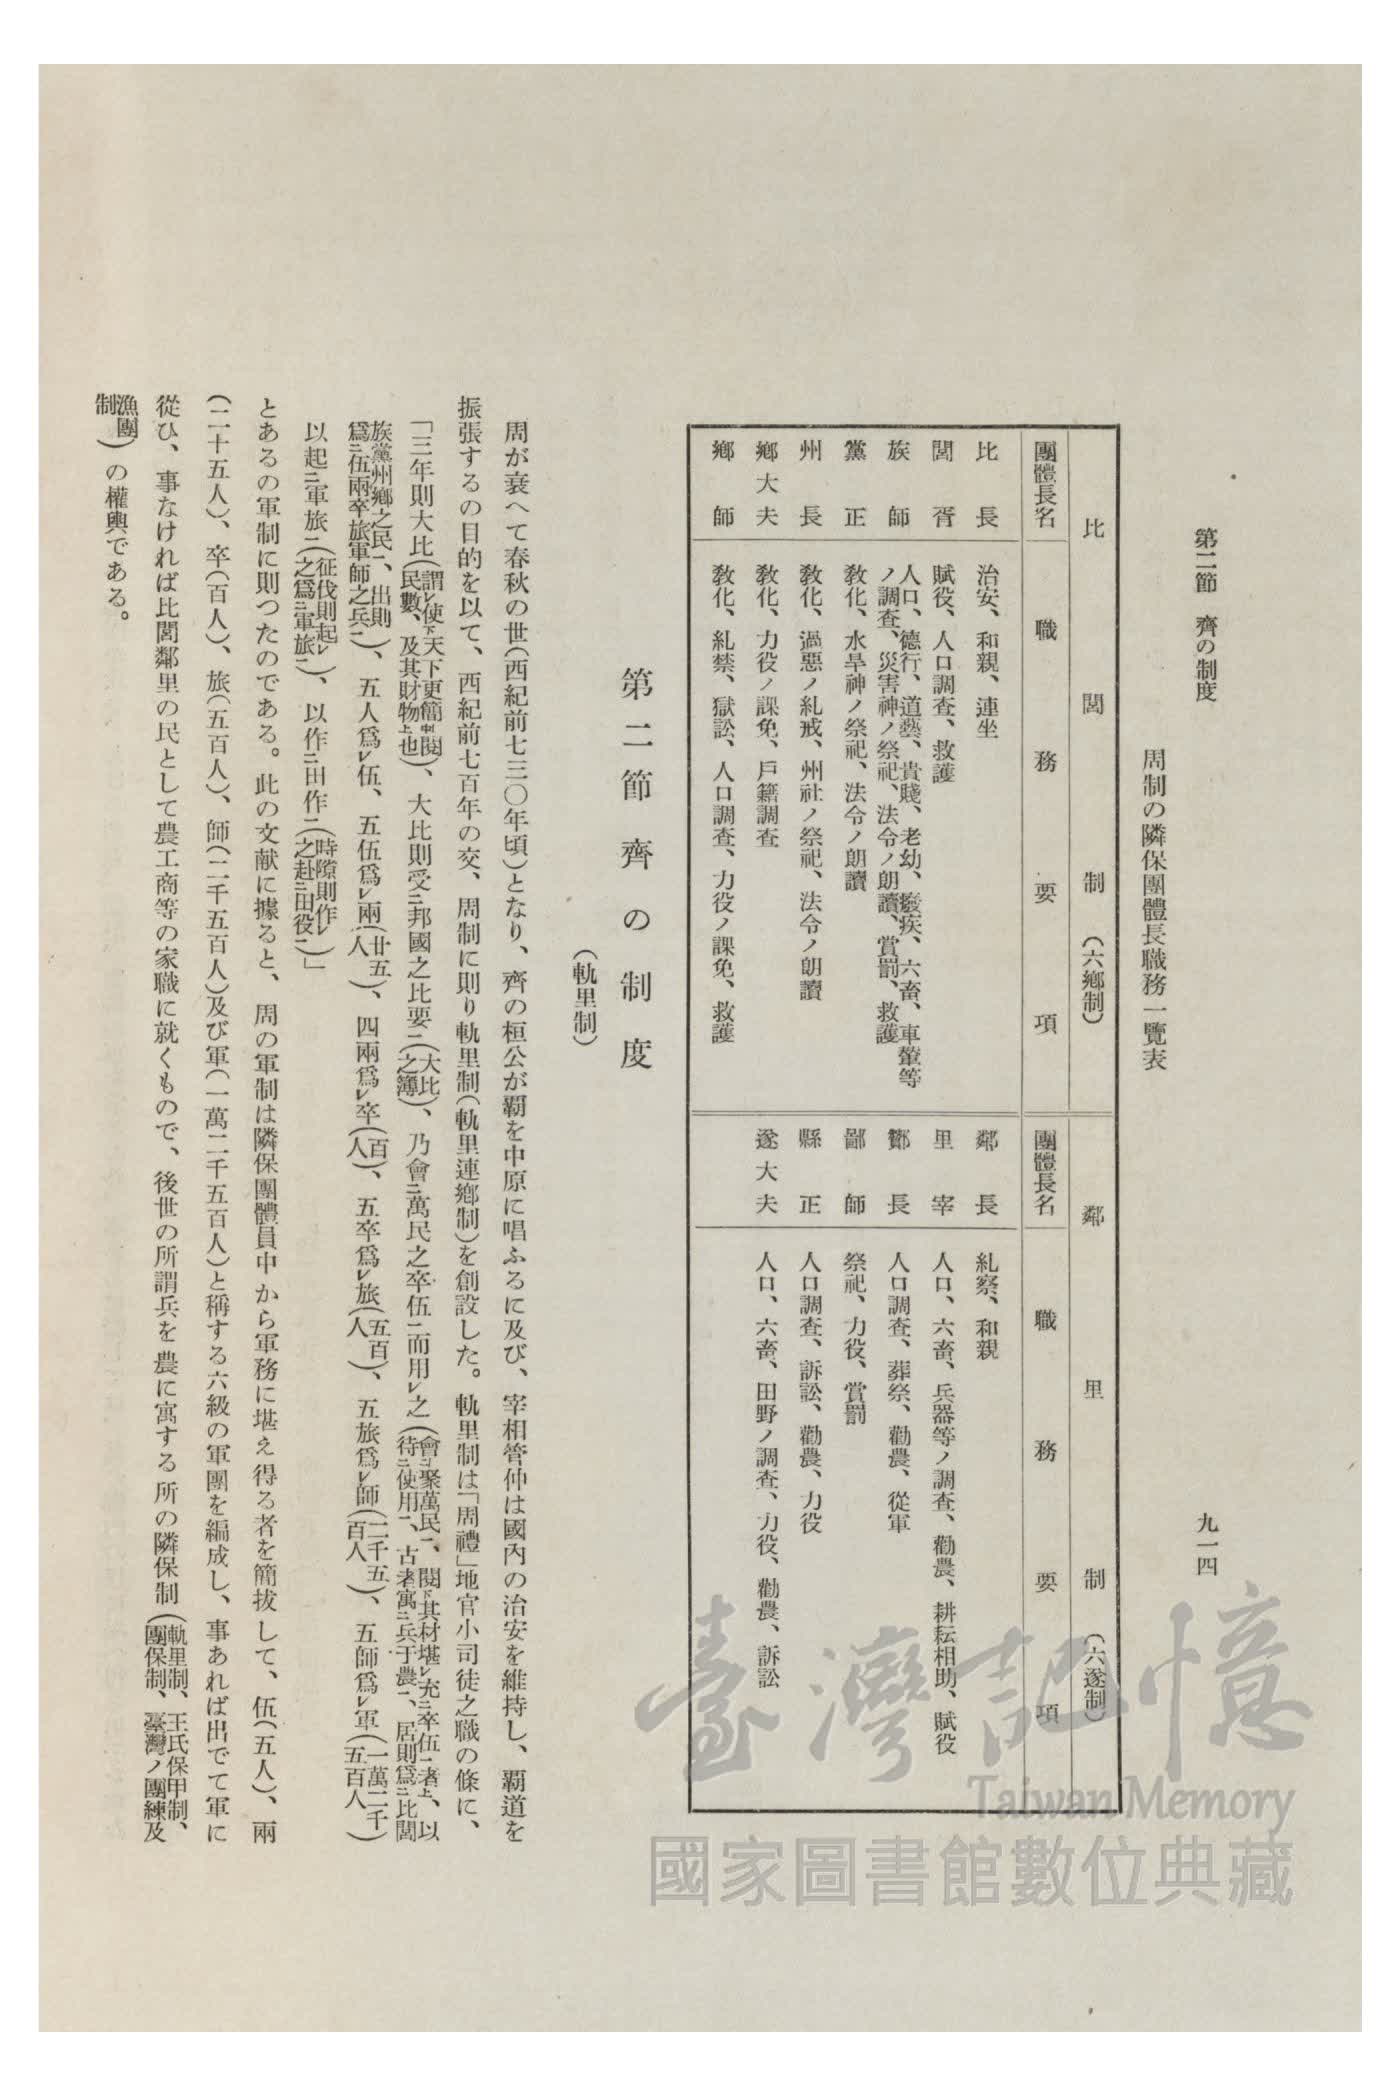 第二節　齊の制度
九一四
周制の隣保團體長職務一覽表
比閭制（六鄕制）
鄰里制（六遂制）
團體長名
職務要項
團體長名
職務要項
比長　治安、和親、連坐
鄰長　糺察、和親
閭胥　賦役、人口調査、救護
里宰　人口、六畜、兵器等ノ調査、勸農、耕耘相助、賦役
族師　人口、德行、道藝、貴賤、老幼、癈疾、六畜、車輦等
ノ調査、災害神ノ祭祀、法令ノ朗讀、賞罰、救護
酇長　人口調査、葬祭、勸農、從軍
黨正　敎化、水旱神ノ祭祀、法令ノ朗讀
鄙師　祭祀、力役、賞罰
州長　敎化、過惡ノ糺戒、州社ノ祭祀、法令ノ朗讀
縣正　人口調査、訴訟、勸農、力役
鄕大夫　敎化、力役ノ課免、戶籍調査
遂大夫　人口、六畜、田野ノ調査、力役、勸農、訴訟
鄕師　敎化、糺禁、獄訟、人口調査、力役ノ課免、救護
第二節　齊の制度
（軌里制）
周が衰へて春秋の世（西紀前七三〇年頃）となり、齊の桓公が覇を中原に唱ふるに及び、宰相管仲は國內の治安を維持し、覇道を
振張するの目的を以て、西紀前七百年の交、周制に則り軌里制（軌里連鄕制）を創設した。軌里制は「周禮」地官小司徒之職の條に、
「三年則大比（謂レ使下天下更簡中閱民數、及其財物上也）、大比則受二邦國之比要一（大比之簿）、乃會二萬民之卒伍一而用レ之（會二聚萬民一、閱下其材堪レ充二卒伍一者上、以待二使用一、古者寓二兵于農一、居則爲二比閭
族黨州鄕之民一、出則爲二伍兩卒旅軍師之兵一）、五人爲レ伍、五伍爲レ兩（廿五人）、四兩爲レ卒（百人）、五卒爲レ旅（五百人）、五旅爲レ師（二千五百人）、五師爲レ軍（一萬二千五百人）
以起二軍旅一（征伐則起レ之爲二軍旅一）、以作二田作一（時隙則作レ之赴二田役一）」
とあるの軍制に則つたのである。此の文献に據ると、周の軍制は隣保團體員中から軍務に堪え得る者を簡拔して、伍（五人）、兩
（二十五人）、卒（百人）、旅（五百人）、師（二千五百人）及び軍（一萬二千五百人）と稱する六級の軍團を編成し、事あれば出でて軍に
從ひ、事なければ比閭鄰里の民として農工商等の家職に就くもので、後世の所謂兵を農に寓する所の隣保制（軌里制、王氏保甲制、團保制、臺灣ノ團練及
漁團制）の權輿である。
臺灣記憶
Taiwan Memory
國家圖書館數位典藏